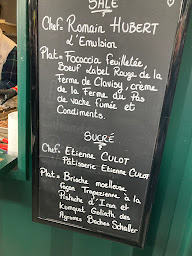 SALÉ
Chef = Romain HUBERT
d'Emulsion
Plat = Focaccia feuilletée,
Boeuf Label Rouge de la
Ferme de Clavisy, crème
de la Ferme du Pas
de vache fumée et
Condiments.
SUCRÉ
Chef = Etienne CULOT
Pâtisserie Etienne CULOT
Plat = Brioche moelleuse
façon Trapézienne à la
Pistache d'Iran et
Kumquat Goliath des
Agrumes Bachès Schaller